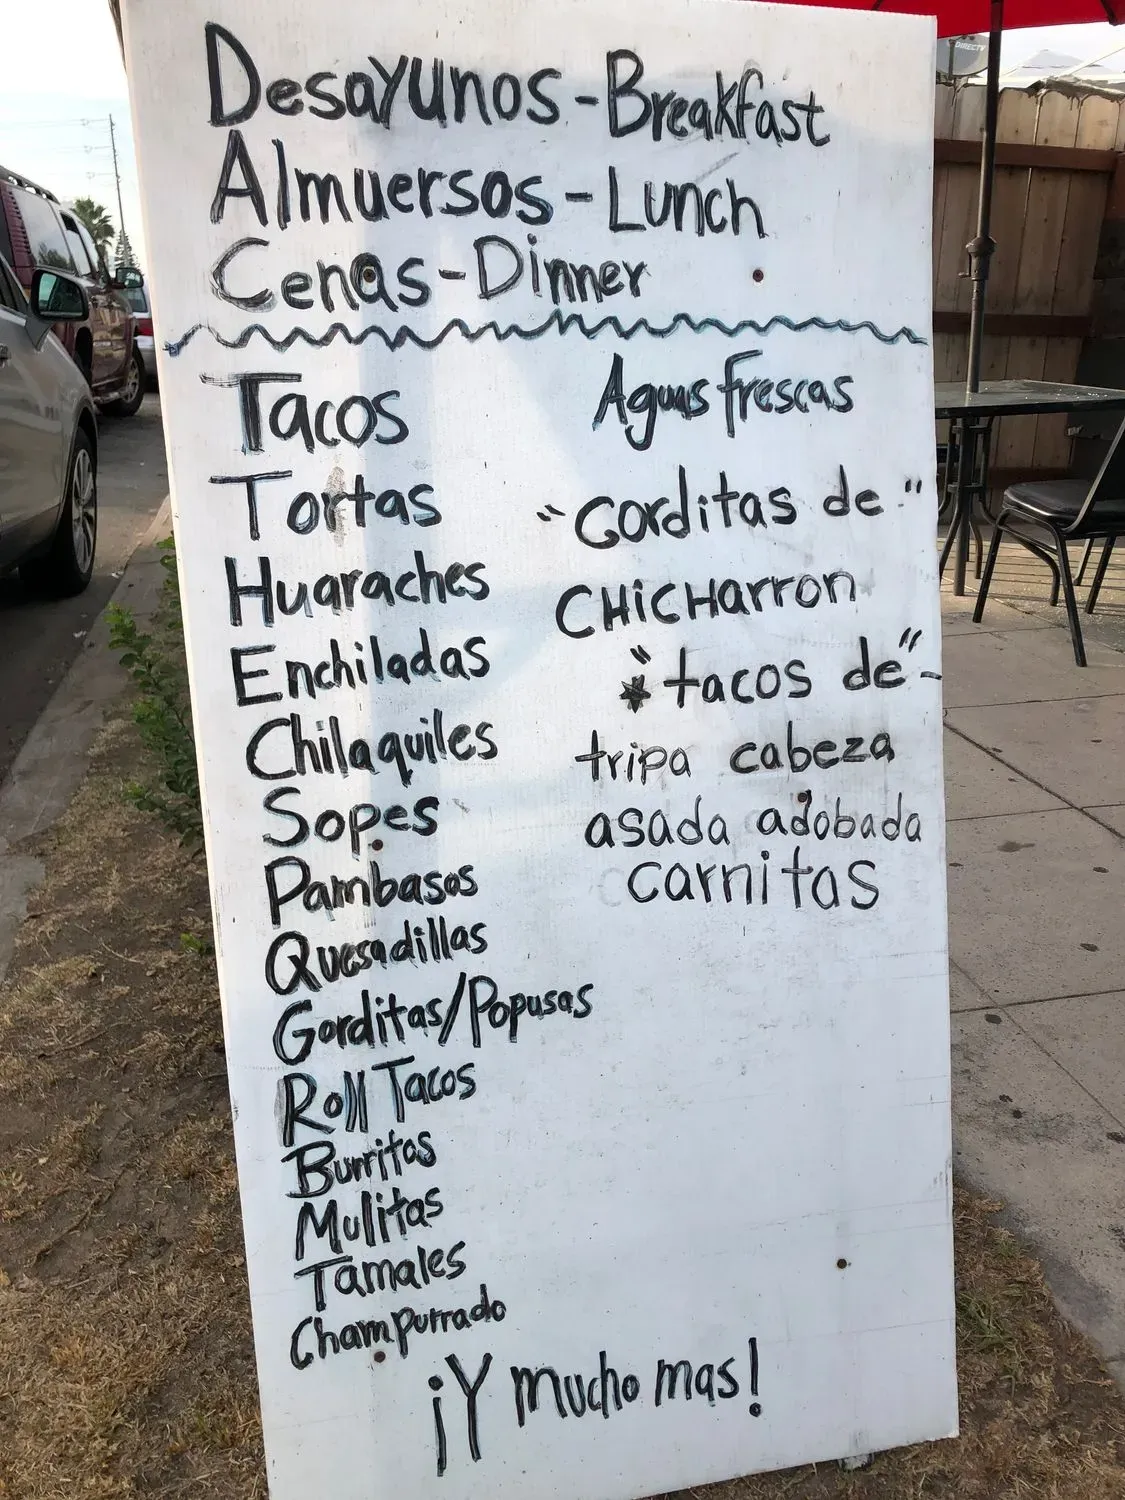 Desayunos - Breakfast
Almuersos - Lunch
Cenas - Dinner
Tacos
Tortas
Huaraches
Enchiladas
Chilaquiles
Sopes
Pambasos
Quesadillas
Gorditas/Popusas
Roll Tacos
Burritos
Mulitas
Tamales
Champurrado
Aguas frescas
"Gorditas de"
CHicHarron
"tacos de"-
tripa cabeza
asada adobada
carnitas
¡Y mucho mas!
DIRECTV